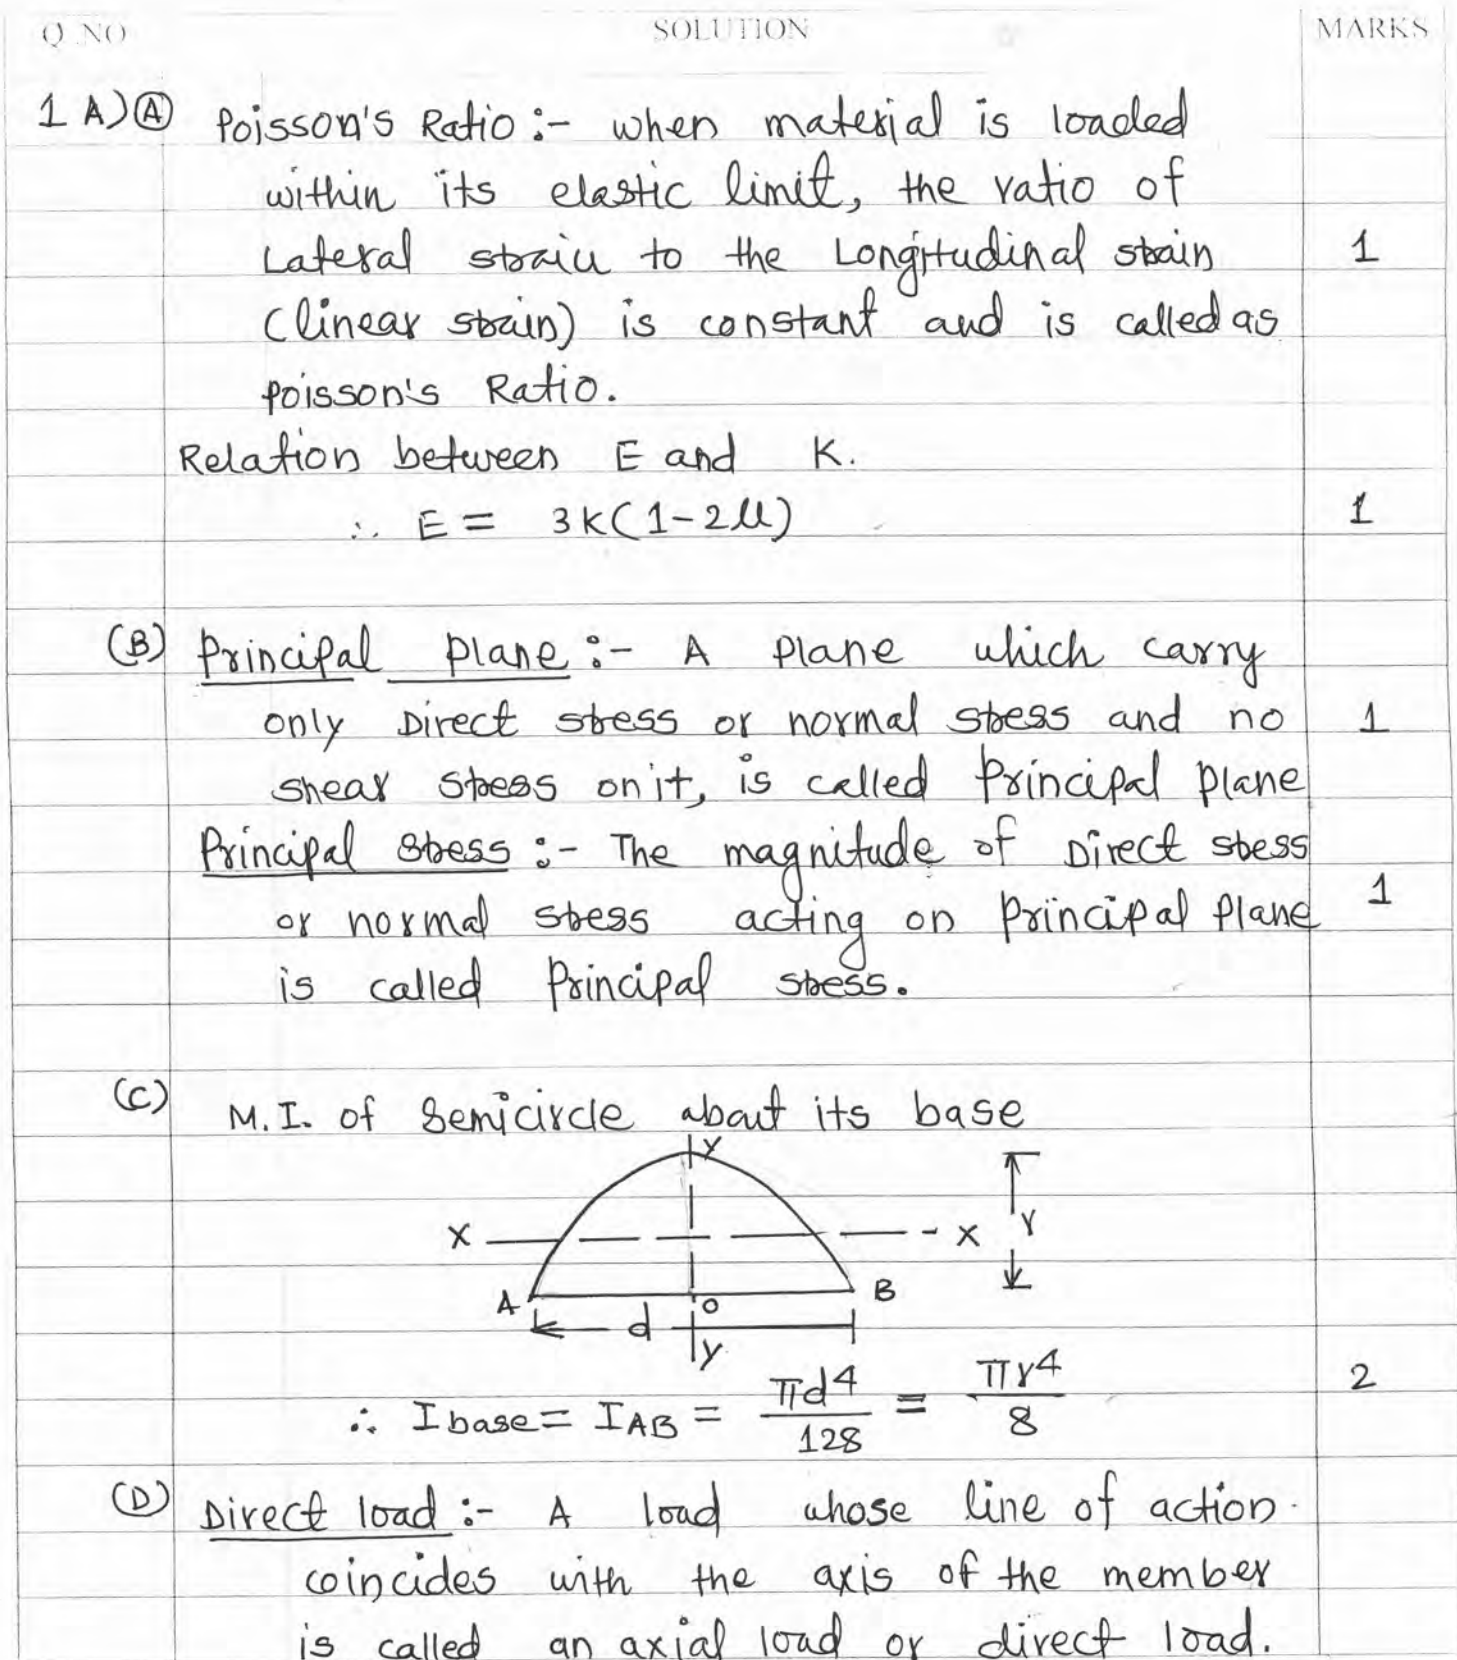 Q. NO SOLUTION MARKS
1 A) (A) Poisson's Ratio :- when material is loaded
within its elastic limit, the ratio of
Lateral strain to the Longitudinal strain 1
(linear strain) is constant and is called as
poisson's Ratio.
Relation between E and K.
∴ E = 3K(1-2μ) 1
(B) Principal plane :- A plane which carry
only Direct stress or normal stress and no 1
shear stress on it, is called Principal plane
Principal stress :- The magnitude of Direct stress
or normal stress acting on Principal plane 1
is called Principal stress.
(C) M.I. of semicircle about its base
Y
X X r
A O B
d
y
∴ I base = I AB = πd⁴/128 = πr⁴/8 2
(D) Direct load :- A load whose line of action
coincides with the axis of the member
is called an axial load or direct load.